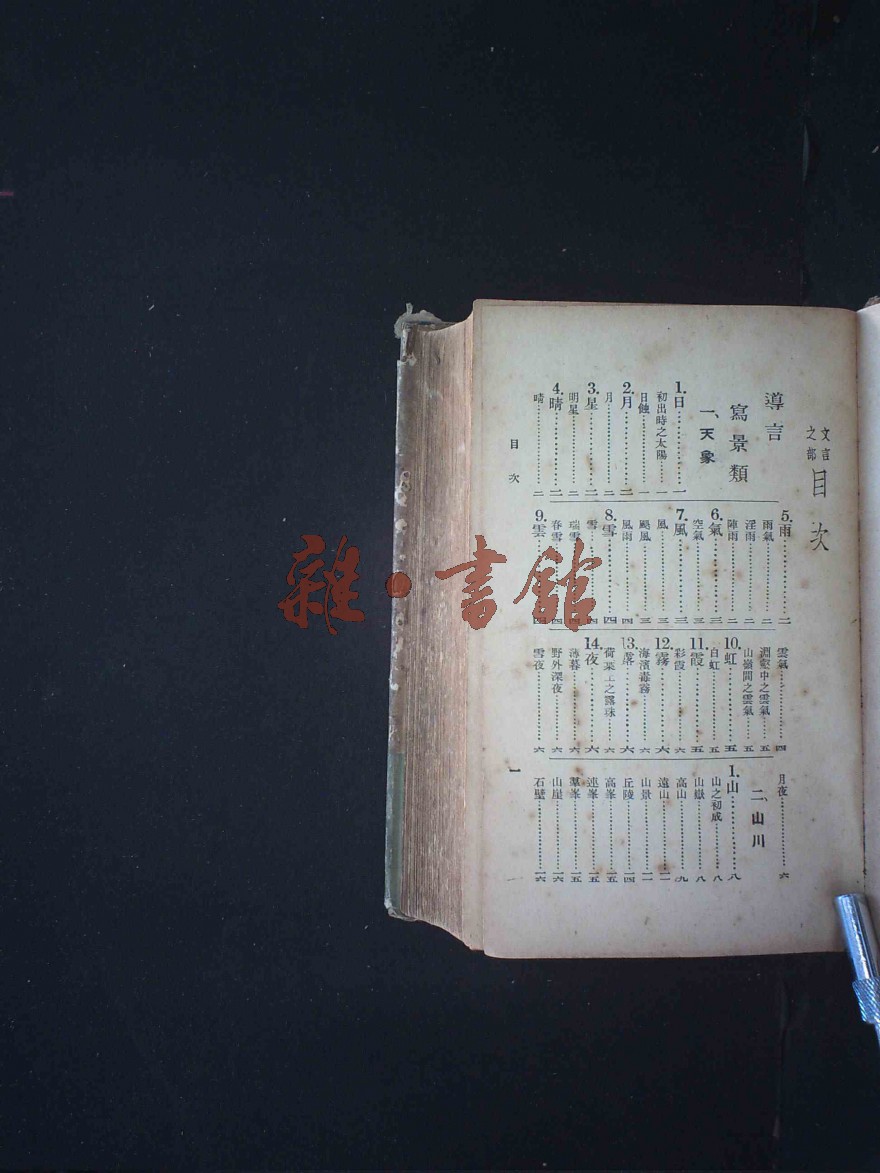 文言之部 目次
導言
寫景類
一、天象
1.日……一
初出時之太陽……一
日蝕……一
2.月……二
月……二
3.星……二
明星……二
4.晴……二
晴……二
5.雨……二
雨氣……二
淫雨……二
陣雨……二
6.氣……三
空氣……三
7.風……三
風……三
颶風……三
風雨……四
8.雪……四
雪……四
瑞雪……四
春雪……四
9.雲……四
雲氣……四
淵壑中之雲氣……五
山嶺間之雲氣……五
10.虹……五
白虹……五
11.霞……五
彩霞……六
12.霧……六
海濱毒霧……六
13.露……六
荷葉上之露珠……六
14.夜……六
薄暮……六
野外深夜……六
雪夜……六
月夜……六
二、山川
1.山……八
山之初成……八
山嶽……八
高山……九
遠山……一一
山景……一一
丘陵……一四
高峯……一五
連峯……一五
羣峯……一五
山崖……一六
石壁……一六
目次
一
雜·書館